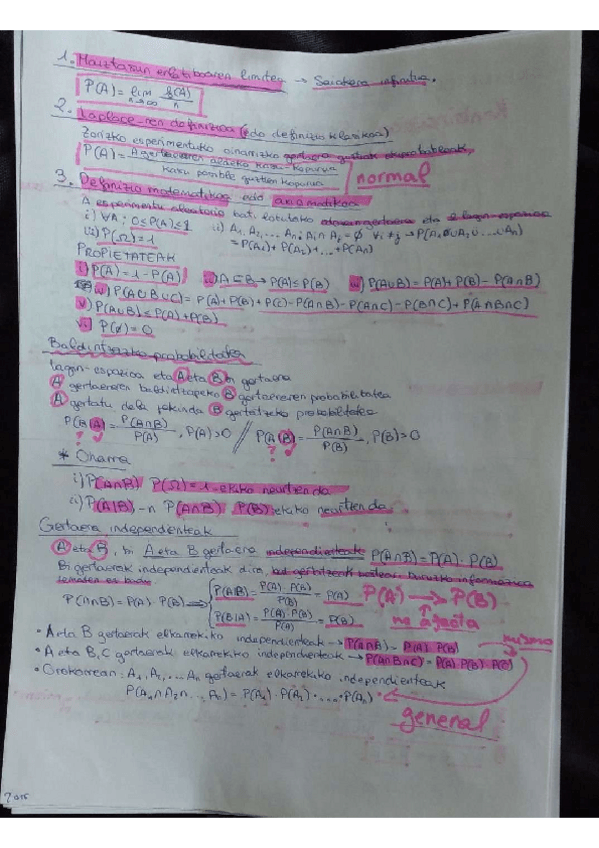 1. Maiztasun erlatiboaren limitea → Saiakera infinitua.
P(A) = lim n→∞ f(A)/n
2. Laplace-ren definizioa (edo definizio klasikoa)
Zorizko esperimentuko oinarrizko gertaera guztiak ekiprobableak,
P(A) = A gertaeraren aldeko kasu-kopurua / kasu posible guztien kopurua
normal
3. Definizio matematikoa edo axiomatikoa
A esperimentu aleatorio bati lotutako eta lagin-espazioa
i) ∀A; 0≤P(A)≤1 ii) A₁, A₂,... An; Ai∩Aj = ∅ ∀i≠j → P(A₁∪A₂∪...∪An)
iii) P(Ω)=1 = P(A₁)+P(A₂)+...+P(An)
PROPIETATEAK
i) P(A) = 1-P(A) ii) A⊂B → P(A)≤P(B) iii) P(A∪B) = P(A)+P(B)-P(A∩B)
iv) P(A∪B∪C) = P(A)+P(B)+P(C)-P(A∩B)-P(A∩C)-P(B∩C)+P(A∩B∩C)
v) P(A∪B)≤P(A)+P(B)
vi) P(∅)=0
Baldintzazko probabilitatea
Lagin-espazioa eta A eta B bi gertaera
A gertaeraren baldintzapeko B gertaeraren probabilitatea
A gertatu dela jakinda B gertatzeko probabilitatea
P(B|A) = P(A∩B)/P(A), P(A)>0 // P(A|B) = P(A∩B)/P(B), P(B)>0
? ?
* Oharra
i) P(A∩B) P(Ω)=1-ekiko neurtzen da
ii) P(A|B)-n P(A∩B) P(B) ekiko neurtzen da
Gertaera independenteak
A eta B, bi A eta B gertaera independenteak P(A∩B)=P(A)·P(B)
Bi gertaerak independenteak dira, bat gertatzeak besteari buruzko informaziorik
ematen ez badu
P(A∩B) = P(A)·P(B) ⟹ P(A|B) = P(A)·P(B)/P(B) = P(A) P(A) → P(B)
P(B|A) = P(A)·P(B)/P(A) = P(B) no afecta
• A eta B gertaerak elkarrekiko independenteak → P(A∩B) = P(A)·P(B) mismo
• A eta B, C gertaerak elkarrekiko independenteak → P(A∩B∩C) = P(A)·P(B)·P(C)
• Orokorrean: A₁, A₂,..., An gertaerak elkarrekiko independenteak
P(A₁∩A₂∩...An) = P(A₁)·P(A₂)·...·P(An)
general